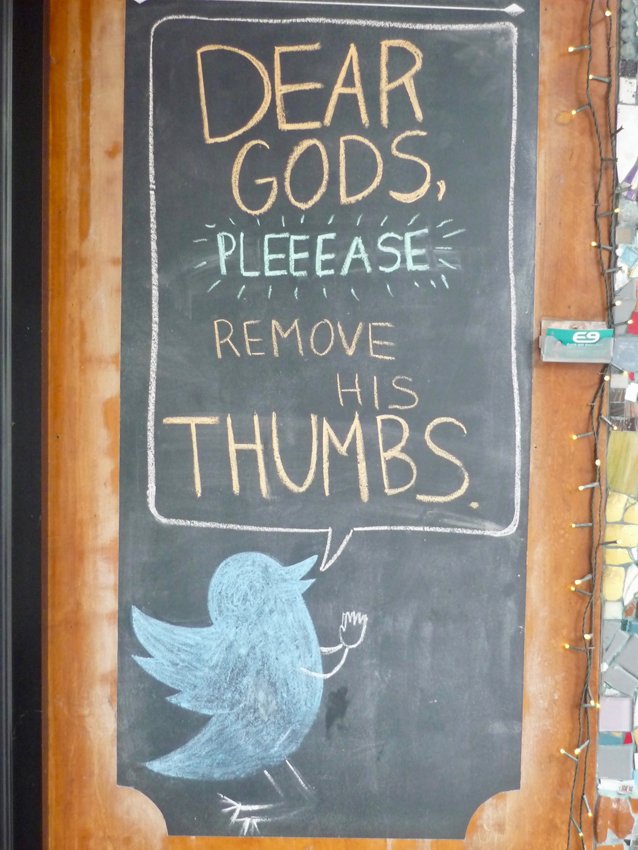 DEAR
GODS,
PLEEEASE
REMOVE
HIS
THUMBS.
E9